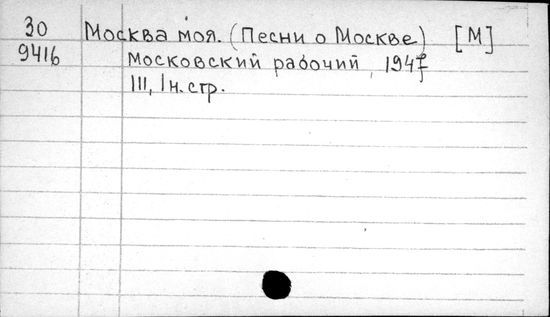 30 Москва моя. (Песни о Москве) [М]
9416 Московский рабочий, 1947
111, 1 н. стр.